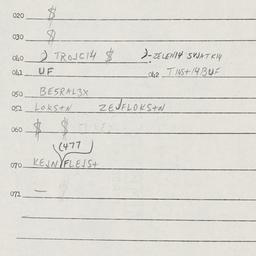 020 $
030 $
040 TROJCI4 $ 2- ZELEN14 SWJATK14
041 UF 042 TINST14BUF
050 BESRAL3X
052 LOKSTN ZEJFLOKSTN
060 $ $
(477)
070 KEJN FLEJST
072 —